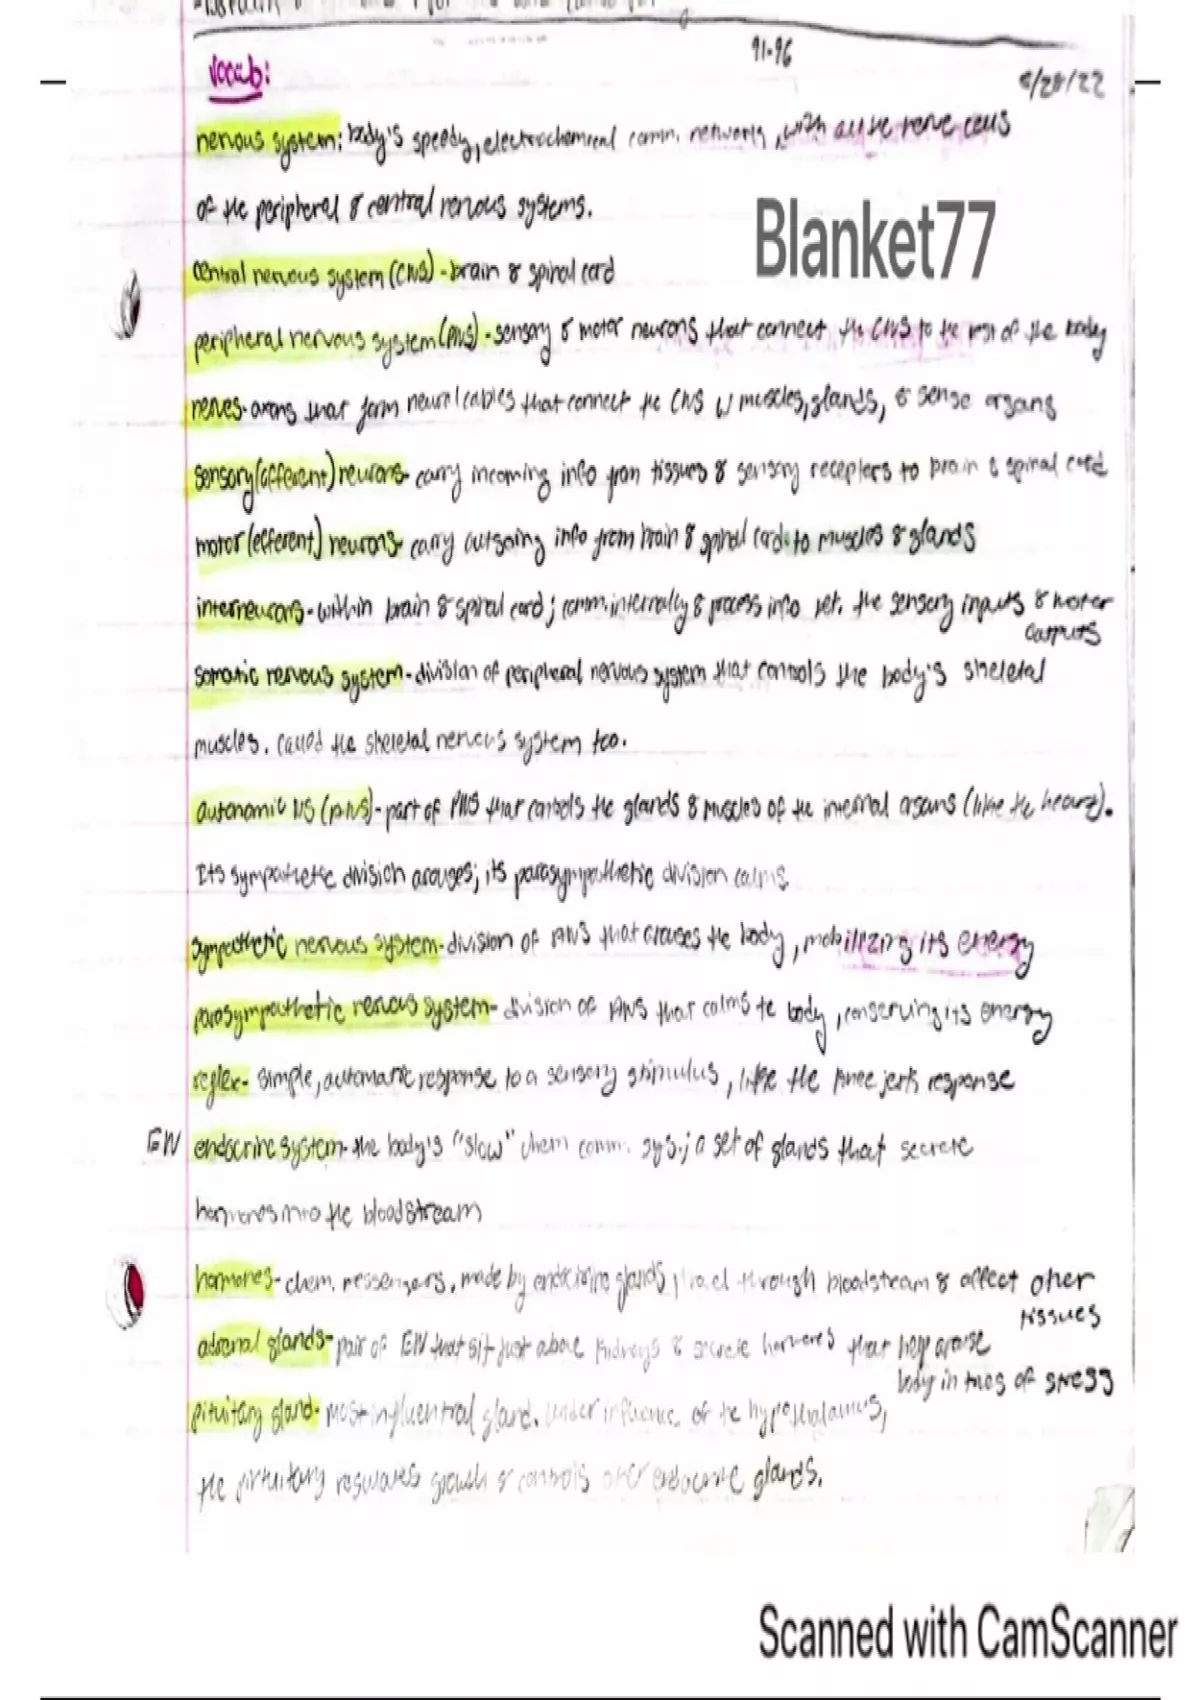 91-96
Vocab:
nervous system: body's speedy, electrochemical comm. network, with all the nerve cells
of the peripheral & central nervous systems.
Blanket77
central nervous system (CNS) - brain & spinal cord
peripheral nervous system (PNS) - sensory & motor neurons that connect the CNS to the rest of the body
nerves - axons that form neural cables that connect the CNS w/ muscles, glands, & sense organs
sensory (afferent) neurons - carry incoming info from tissues & sensory receptors to brain & spinal cord
motor (efferent) neurons - carry outgoing info from brain & spinal cord to muscles & glands
interneurons - within brain & spinal cord; comm. internally & process info bet. the sensory inputs & motor
outputs
somatic nervous system - division of peripheral nervous system that controls the body's skeletal
muscles. called the skeletal nervous system too.
autonomic NS (ANS) - part of PNS that controls the glands & muscles of the internal organs (like the heart).
Its sympathetic division arouses; its parasympathetic division calms
sympathetic nervous system - division of ANS that arouses the body, mobilizing its energy
parasympathetic nervous system - division of ANS that calms the body, conserving its energy
reflex - simple, automatic response to a sensory stimulus, like the knee jerk response
endocrine system - the body's "slow" chem comm. sys.; a set of glands that secrete
hormones into the bloodstream
hormones - chem. messengers, made by endocrine glands, travel through bloodstream & affect other
tissues
adrenal glands - pair of that sit just above kidneys & secrete hormones that help arouse
body in times of stress
pituitary gland - most influential gland. under influence of the hypothalamus,
the pituitary regulates growth & controls other endocrine glands.
Scanned with CamScanner